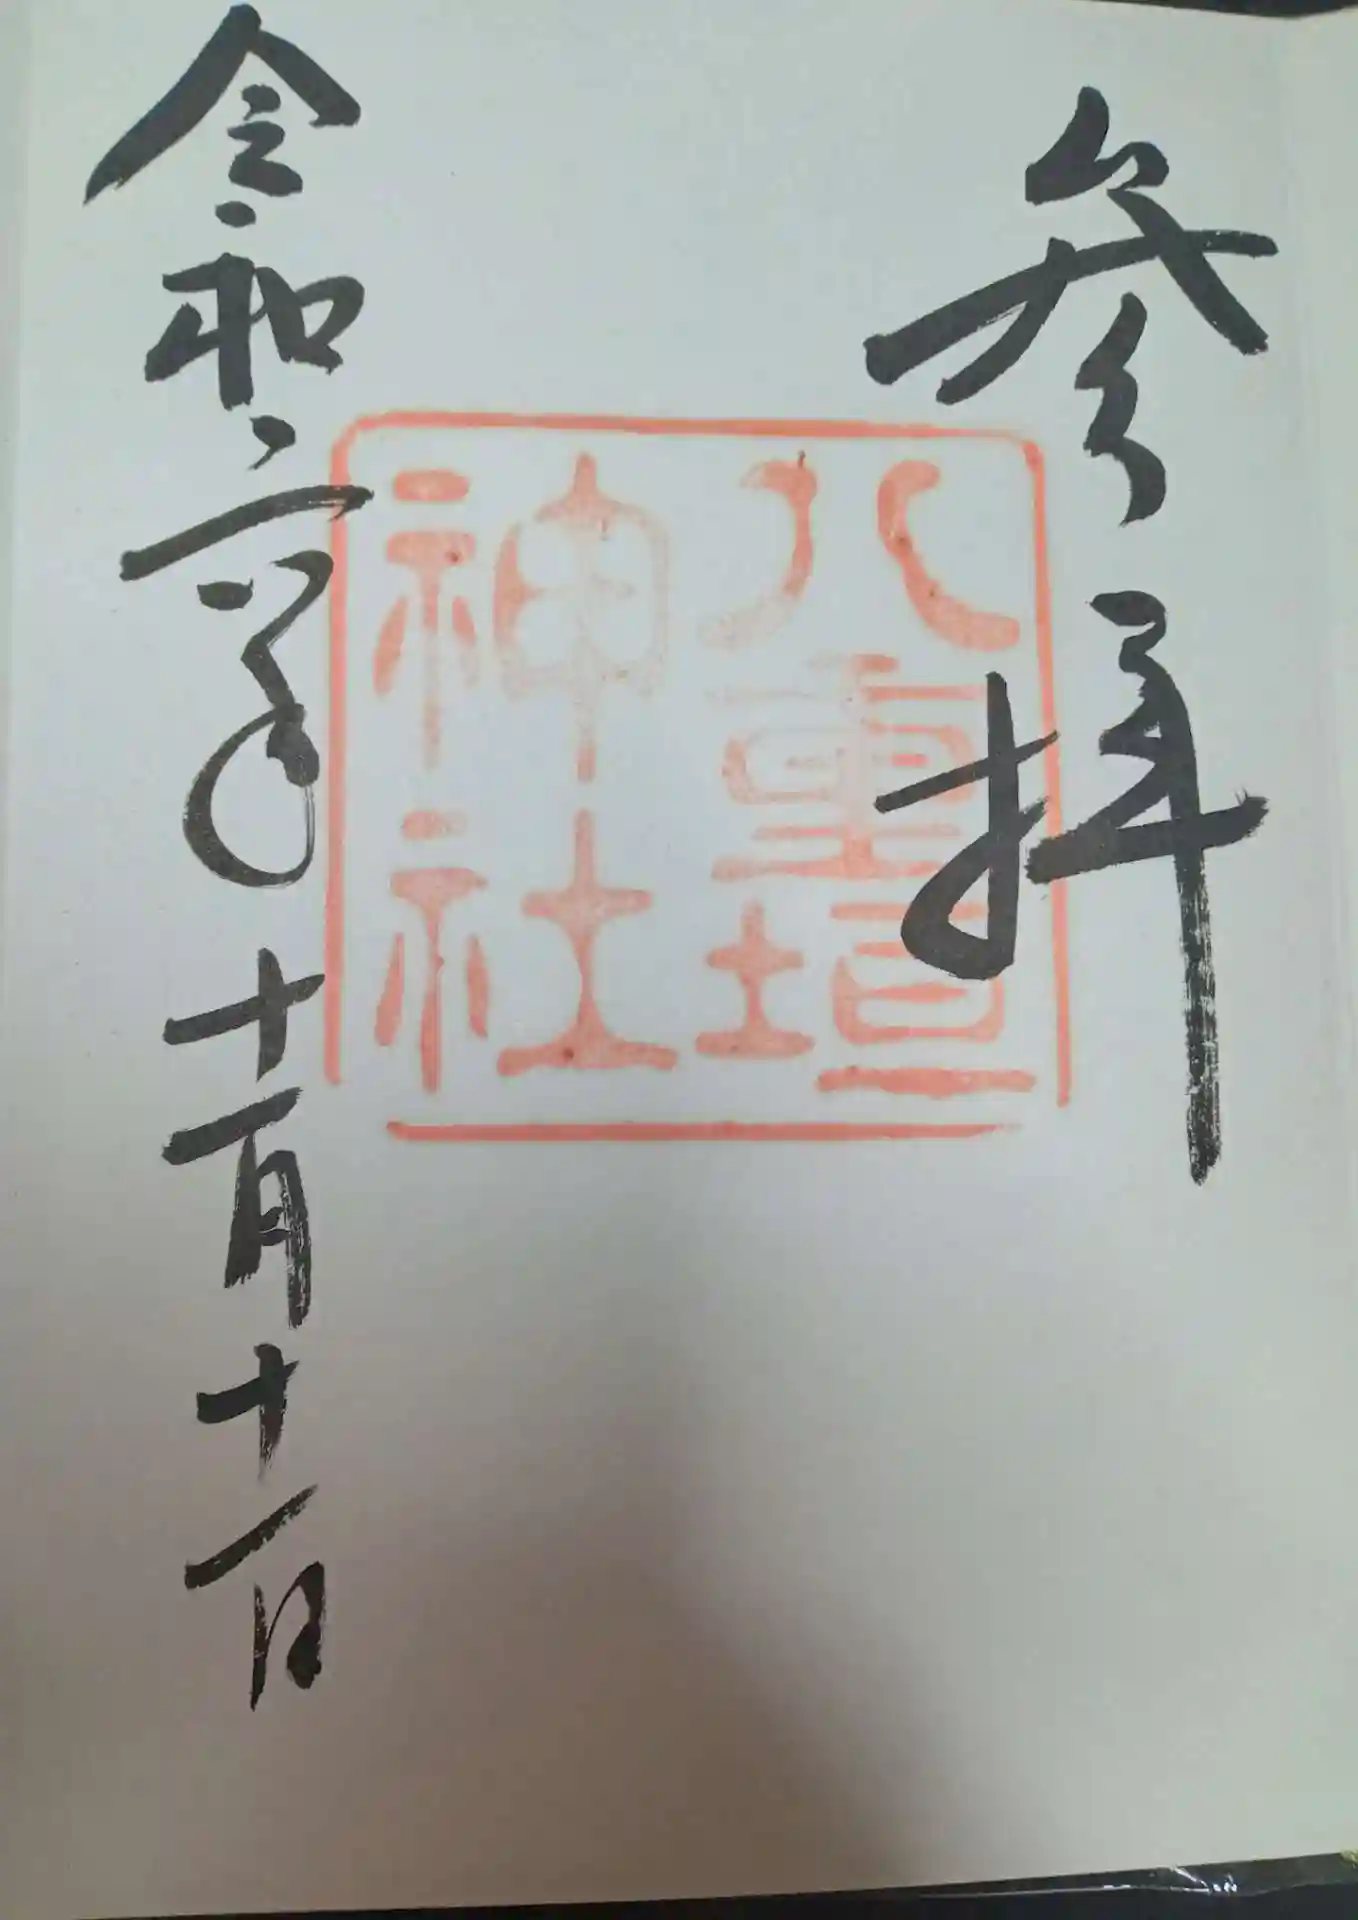 参拝
八重垣
神社
令和六年十一月十一日